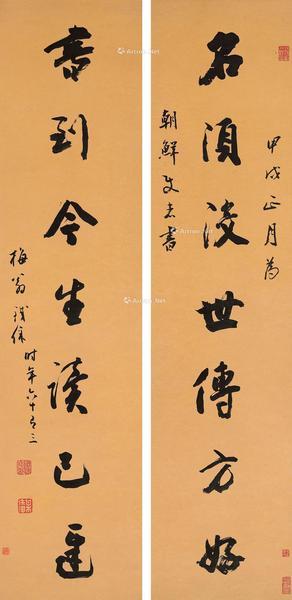 甲戌正月為
名須後世傳方好
朝鮮書
書到今生讀已遲
梅翁鐵保時年六十有三
Artron.Net
Artron.Net
Artron.Net
Artron.Net